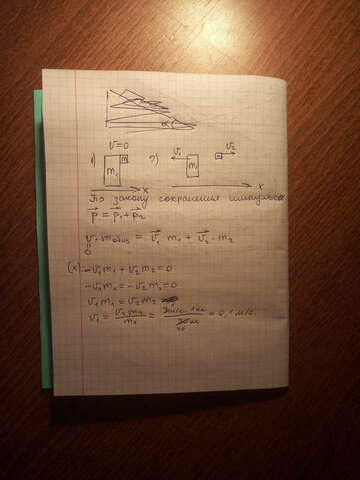 α
V=0
1) m₁ m₂ x 2) V₁ m₁ V₂ x
По закону сохранения импульса
p⃗ = p⃗₁ + p⃗₂
V⃗ · mобщ = V⃗₁ m₁ + V⃗₂ · m₂
0
(x): -V₁m₁ + V₂m₂ = 0
-V₁m₁ = -V₂m₂ = 0
V₁m₁ = V₂m₂
V₁ = V₂m₂/m₁ = = 0,1 м/с.